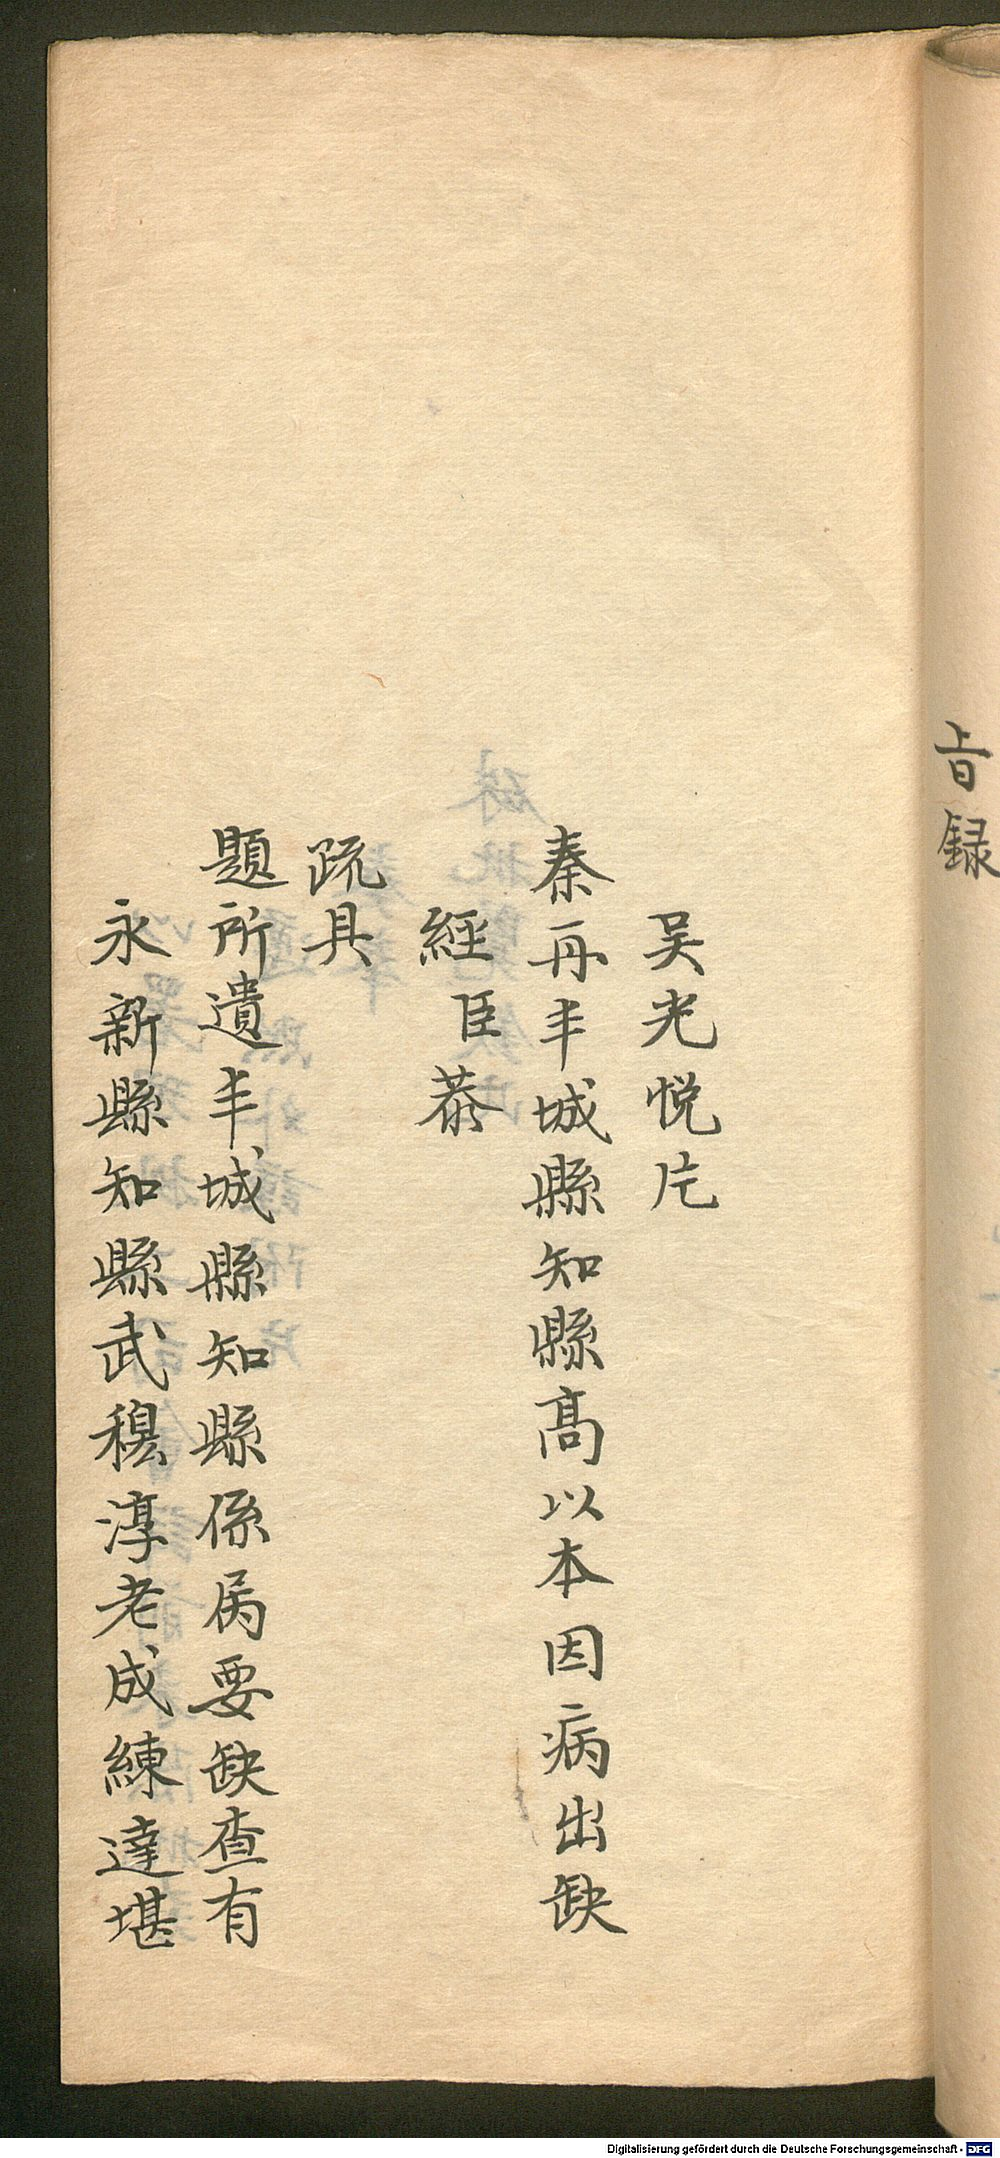 旨録
吴光悦片
奏再丰城縣知縣高以本因病出缺
經臣恭
疏具
題所遺丰城縣知縣係属要缺查有
永新縣知縣武穆淳老成練達堪
Digitalisierung gefördert durch die Deutsche Forschungsgemeinschaft - DFG